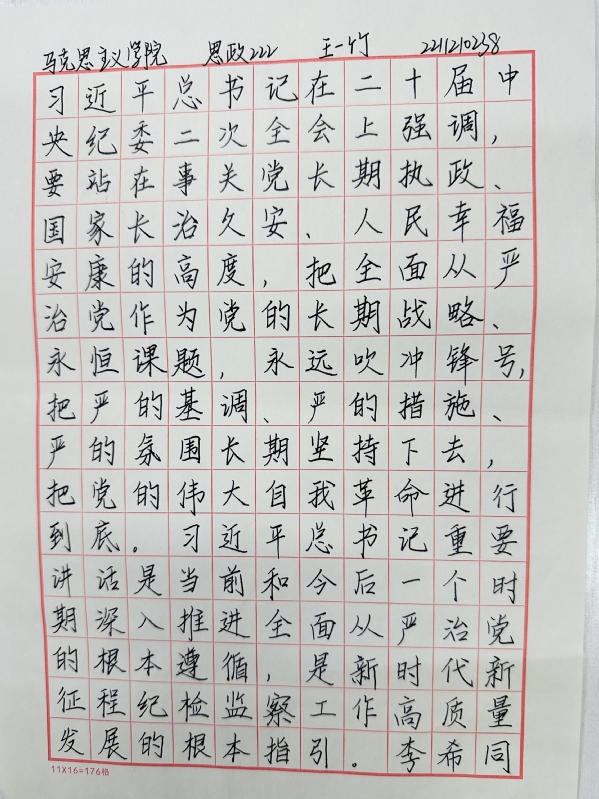 马克思主义学院 思政222 王一竹 2211210238
习近平总书记在二十届中
央纪委二次全会上强调,
要站在事关党长期执政、
国家长治久安、人民幸福
安康的高度,把全面从严
治党作为党的长期战略、
永恒课题,永远吹冲锋号,
把严的基调、严的措施、
严的氛围长期坚持下去,
把党的伟大自我革命进行
到底。习近平总书记重要
讲话是当前和今后一个时
期深入推进全面从严治党
的根本遵循,是新时代新
征程纪检监察工作高质量
发展的根本指引。李希同
11X16=176格